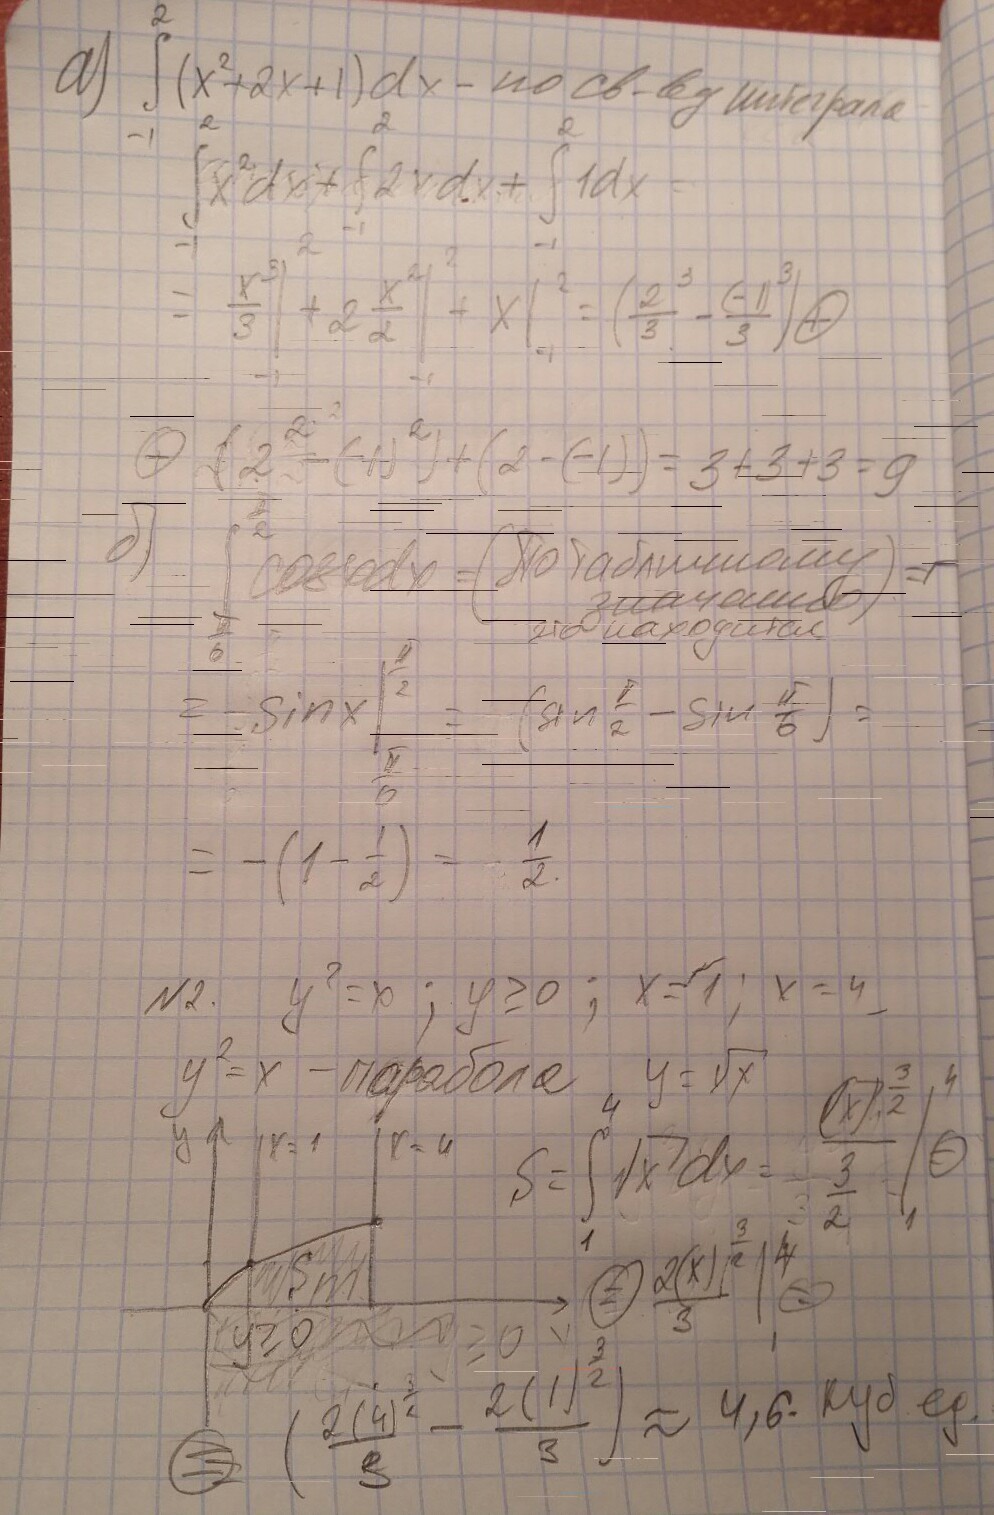 а) ∫₋₁² (x²+2x+1)dx – по св-ву интеграла
∫₋₁² x²dx + ∫₋₁² 2xdx + ∫₋₁² 1dx =
= x³/3 |₋₁² + 2 x²/2 |₋₁² + x |₋₁² = (2³/3 - (-1)³/3) ⊕
⊕ (2² - (-1)²) + (2-(-1)) = 3+3+3=9
б) ∫ cosxdx = (По табличному значению это находится) =
= -sinx | π/2 π/6 = (sin π/2 - sin π/6) =
= -(1 - 1/2) = 1/2.
N2. y²=x ; y≥0 ; x=1 ; x=4
y²=x – парабола y=√x
y x=1 x=4 S= ∫₁⁴ √x dx = (x)^(3/2) / (3/2) |₁⁴ ⊜
Sm ⊜ 2(x)^(3/2) / 3 |₁⁴ ⊜
y≥0 y≥0
⊜ (2(4)^(3/2) / 3 - 2(1)^(3/2) / 3) ≈ 4,6 куб ед.